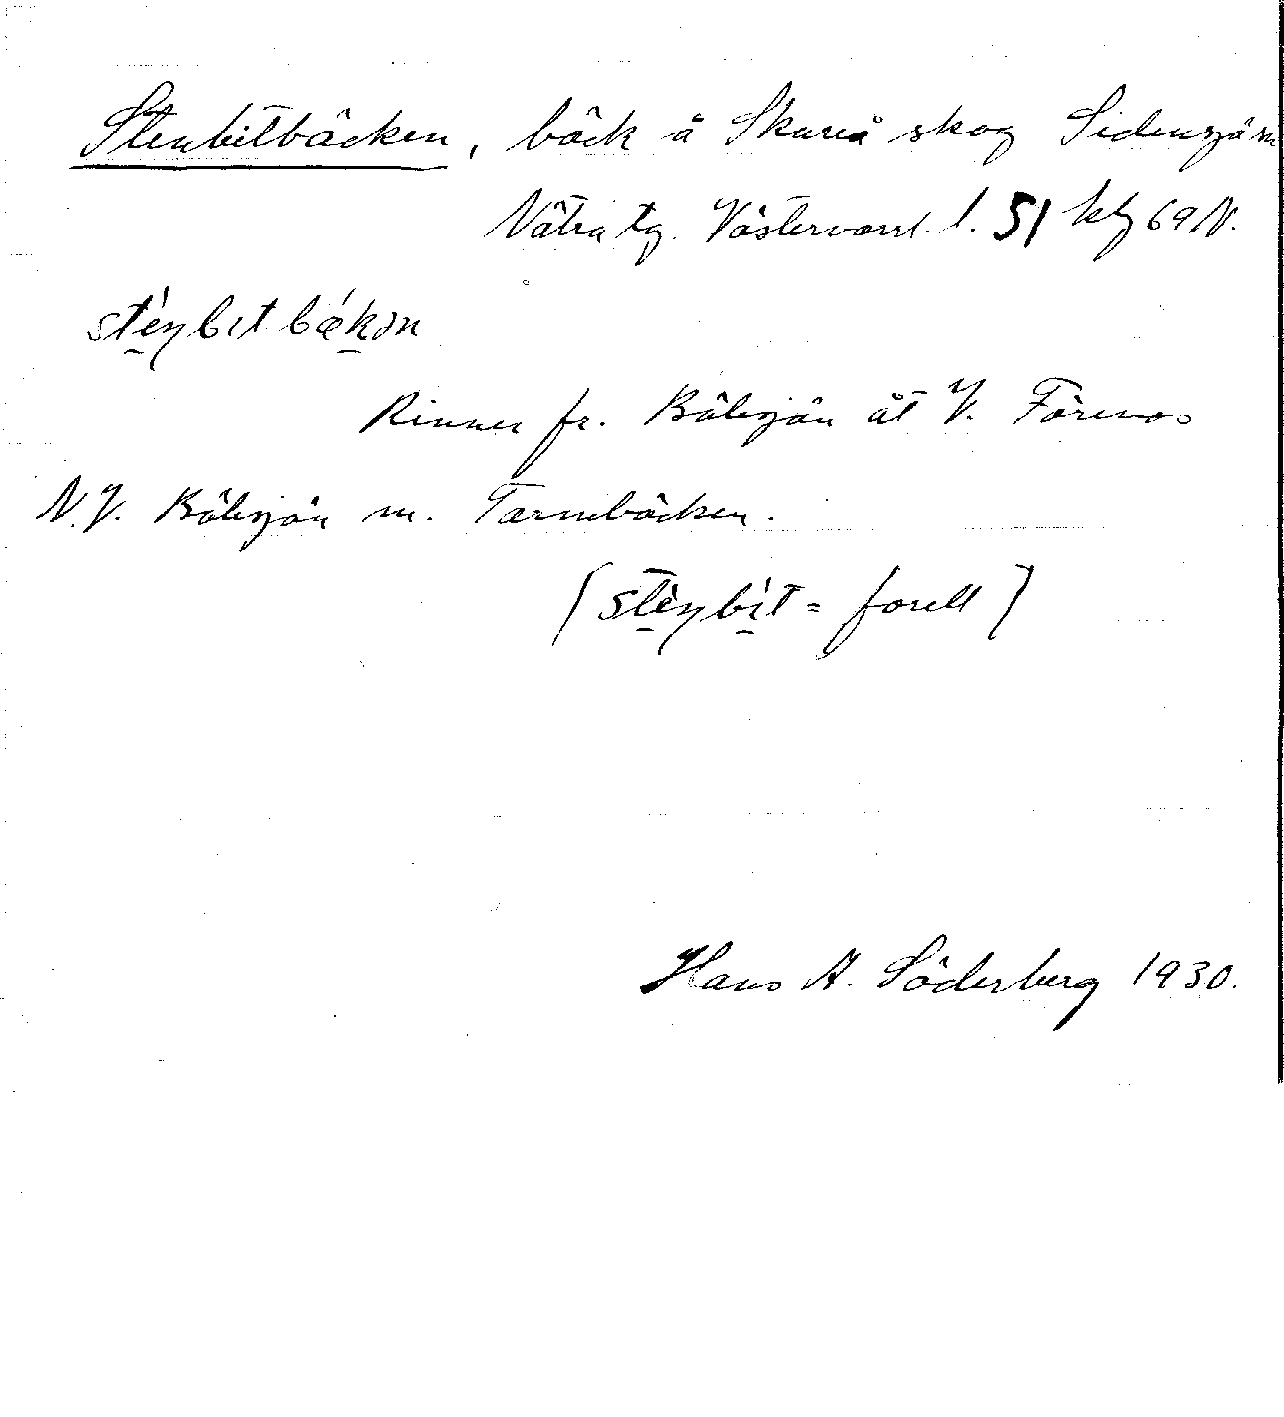 Stenbitbäcken, bäck å Skureå skog Sidensjö sn
Nätra tg. Västernorrl. l. 51 kbl 69 N.
stènbɪtbǽkən
Rinner fr. Bölesjön åt V. Förenas
N.V. Bölesjön m. Tarmbäcken.
(stènbít = forell)
Hans A. Söderberg 1930.